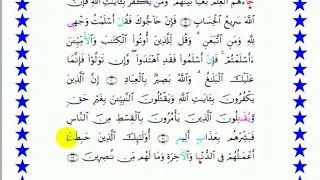 جَآءَهُمُ ٱلْعِلْمُ بَغْيًۢا بَيْنَهُمْ ۗ وَمَن يَكْفُرْ بِـَٔايَـٰتِ ٱللَّهِ فَإِنَّ
ٱللَّهَ سَرِيعُ ٱلْحِسَابِ ۝ فَإِنْ حَآجُّوكَ فَقُلْ أَسْلَمْتُ وَجْهِىَ
لِلَّهِ وَمَنِ ٱتَّبَعَنِ ۗ وَقُل لِّلَّذِينَ أُوتُوا۟ ٱلْكِتَـٰبَ وَٱلْأُمِّيِّـۧنَ
ءَأَسْلَمْتُمْ ۚ فَإِنْ أَسْلَمُوا۟ فَقَدِ ٱهْتَدَوا۟ ۖ وَّإِن تَوَلَّوْا۟ فَإِنَّمَا
عَلَيْكَ ٱلْبَلَـٰغُ ۗ وَٱللَّهُ بَصِيرٌۢ بِٱلْعِبَادِ ۝ إِنَّ ٱلَّذِينَ
يَكْفُرُونَ بِـَٔايَـٰتِ ٱللَّهِ وَيَقْتُلُونَ ٱلنَّبِيِّـۧنَ بِغَيْرِ حَقٍّ
وَيَقْتُلُونَ ٱلَّذِينَ يَأْمُرُونَ بِٱلْقِسْطِ مِنَ ٱلنَّاسِ
فَبَشِّرْهُم بِعَذَابٍ أَلِيمٍ ۝ أُو۟لَـٰٓئِكَ ٱلَّذِينَ حَبِطَتْ
أَعْمَـٰلُهُمْ فِى ٱلدُّنْيَا وَٱلْـَٔاخِرَةِ وَمَا لَهُم مِّن نَّـٰصِرِينَ ۝